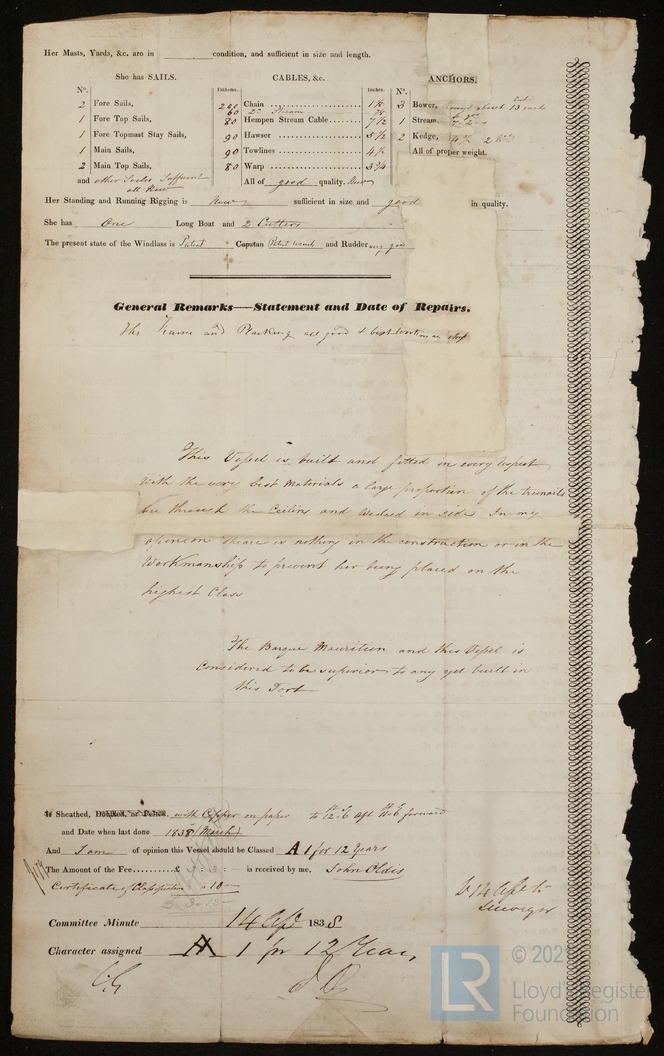 Her Masts, Yards, &c. are in condition, and sufficient in size and length.
She has SAILS. CABLES, &c. ANCHORS.
Nº. Fathoms. Inches. Nº.
2 Fore Sails, 200 Chain 3 Bower,
1 Fore Top Sails, 80 Hempen Stream Cable 7 1/2 1 Stream
1 Fore Topmast Stay Sails, 90 Hawser 5 1/2 2 Kedge,
1 Main Sails, 90 Towlines 4 1/2 All of proper weight.
2 Main Top Sails, 80 Warp 3 3/4
and other Sails Sufficient All of good quality. New
all New
Her Standing and Running Rigging is New sufficient in size and good in quality.
She has One Long Boat and 2 Cutters
The present state of the Windlass is Patent Capstan Patent winch and Rudder
General Remarks—Statement and Date of Repairs.
The Frame and Planking are good & best workmanship
This Vessel is built and fitted in every respect
with the very best materials a large proportion of the trenails
are through the Ceiling and wedged in side In my
opinion there is nothing in the construction or in the
Workmanship to prevent her being placed on the
highest Class
The Barque Mauritian and this Vessel is
considered to be superior to any yet built in
this Port
If Sheathed, Doubled, or Felted, with Copper on paper to 12.6 aft forward
and Date when last done 1838 (March)
And I am of opinion this Vessel should be Classed A 1 for 12 Years
The Amount of the Fee £ is received by me, John Oldis
Certificate of Classification " 10 "
Committee Minute 14 Apl 1838
Character assigned A 1 for 12 Years
© 202
LR
Lloyd's Register
Foundation